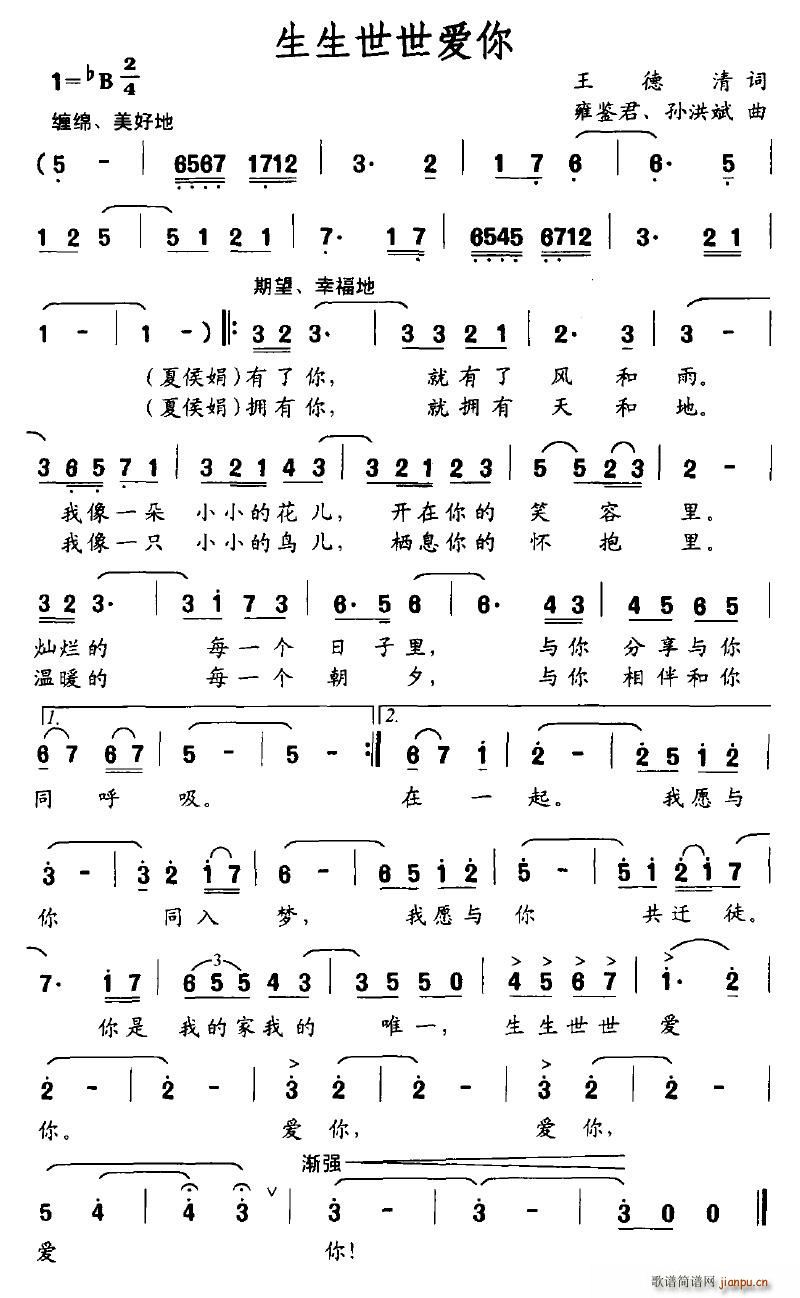 生生世世爱你
1=♭B 2/4
王德清词
缠绵、美好地
雍鉴君、孙洪斌曲
(5 - | 6567 1712 | 3· 2 | 1 7 6 | 6· 5 |
1 2 5 | 5 1 2 1 | 7· 1 7 | 6545 6712 | 3· 2 1 |
期望、幸福地
1 - | 1 - ) ‖: 3 2 3· | 3 3 2 1 | 2· 3 | 3 - |
(夏侯娟)有了你, 就有了风和雨。
(夏侯娟)拥有你, 就拥有天和地。
3 6 5 7 1 | 3 2 1 4 3 | 3 2 1 2 3 | 5 5 2 3 | 2 - |
我像一朵小小的花儿, 开在你的笑容里。
我像一只小小的鸟儿, 栖息你的怀抱里。
3 2 3· | 3 1 7 3 | 6· 5 6 | 6· 4 3 | 4 5 6 5 |
灿烂的 每一个日子里, 与你分享与你
温暖的 每一个朝夕, 与你相伴和你
1. 2.
6 7 6 7 | 5 - | 5 - :‖ 6 7 1 | 2 - | 2 5 1 2 |
同呼吸。 在一起。 我愿与
3 - | 3 2 1 7 | 6 - | 6 5 1 2 | 5 - | 5 1 2 1 7 |
你 同入梦, 我愿与你 共迁徒。
7· 1 7 | 3 6 5 5 4 3 | 3 5 5 0 | 4 5 6 7 | 1· 2 |
你是我的家我的唯一, 生生世世爱
2 - | 2 - | 3 2 | 2 - | 3 2 | 2 - |
你。 爱你, 爱你,
渐强
5 4 | 4 3 ∨ | 3 - | 3 - | 3 0 0 ‖
爱 你!
歌谱简谱网 jianpu.cn